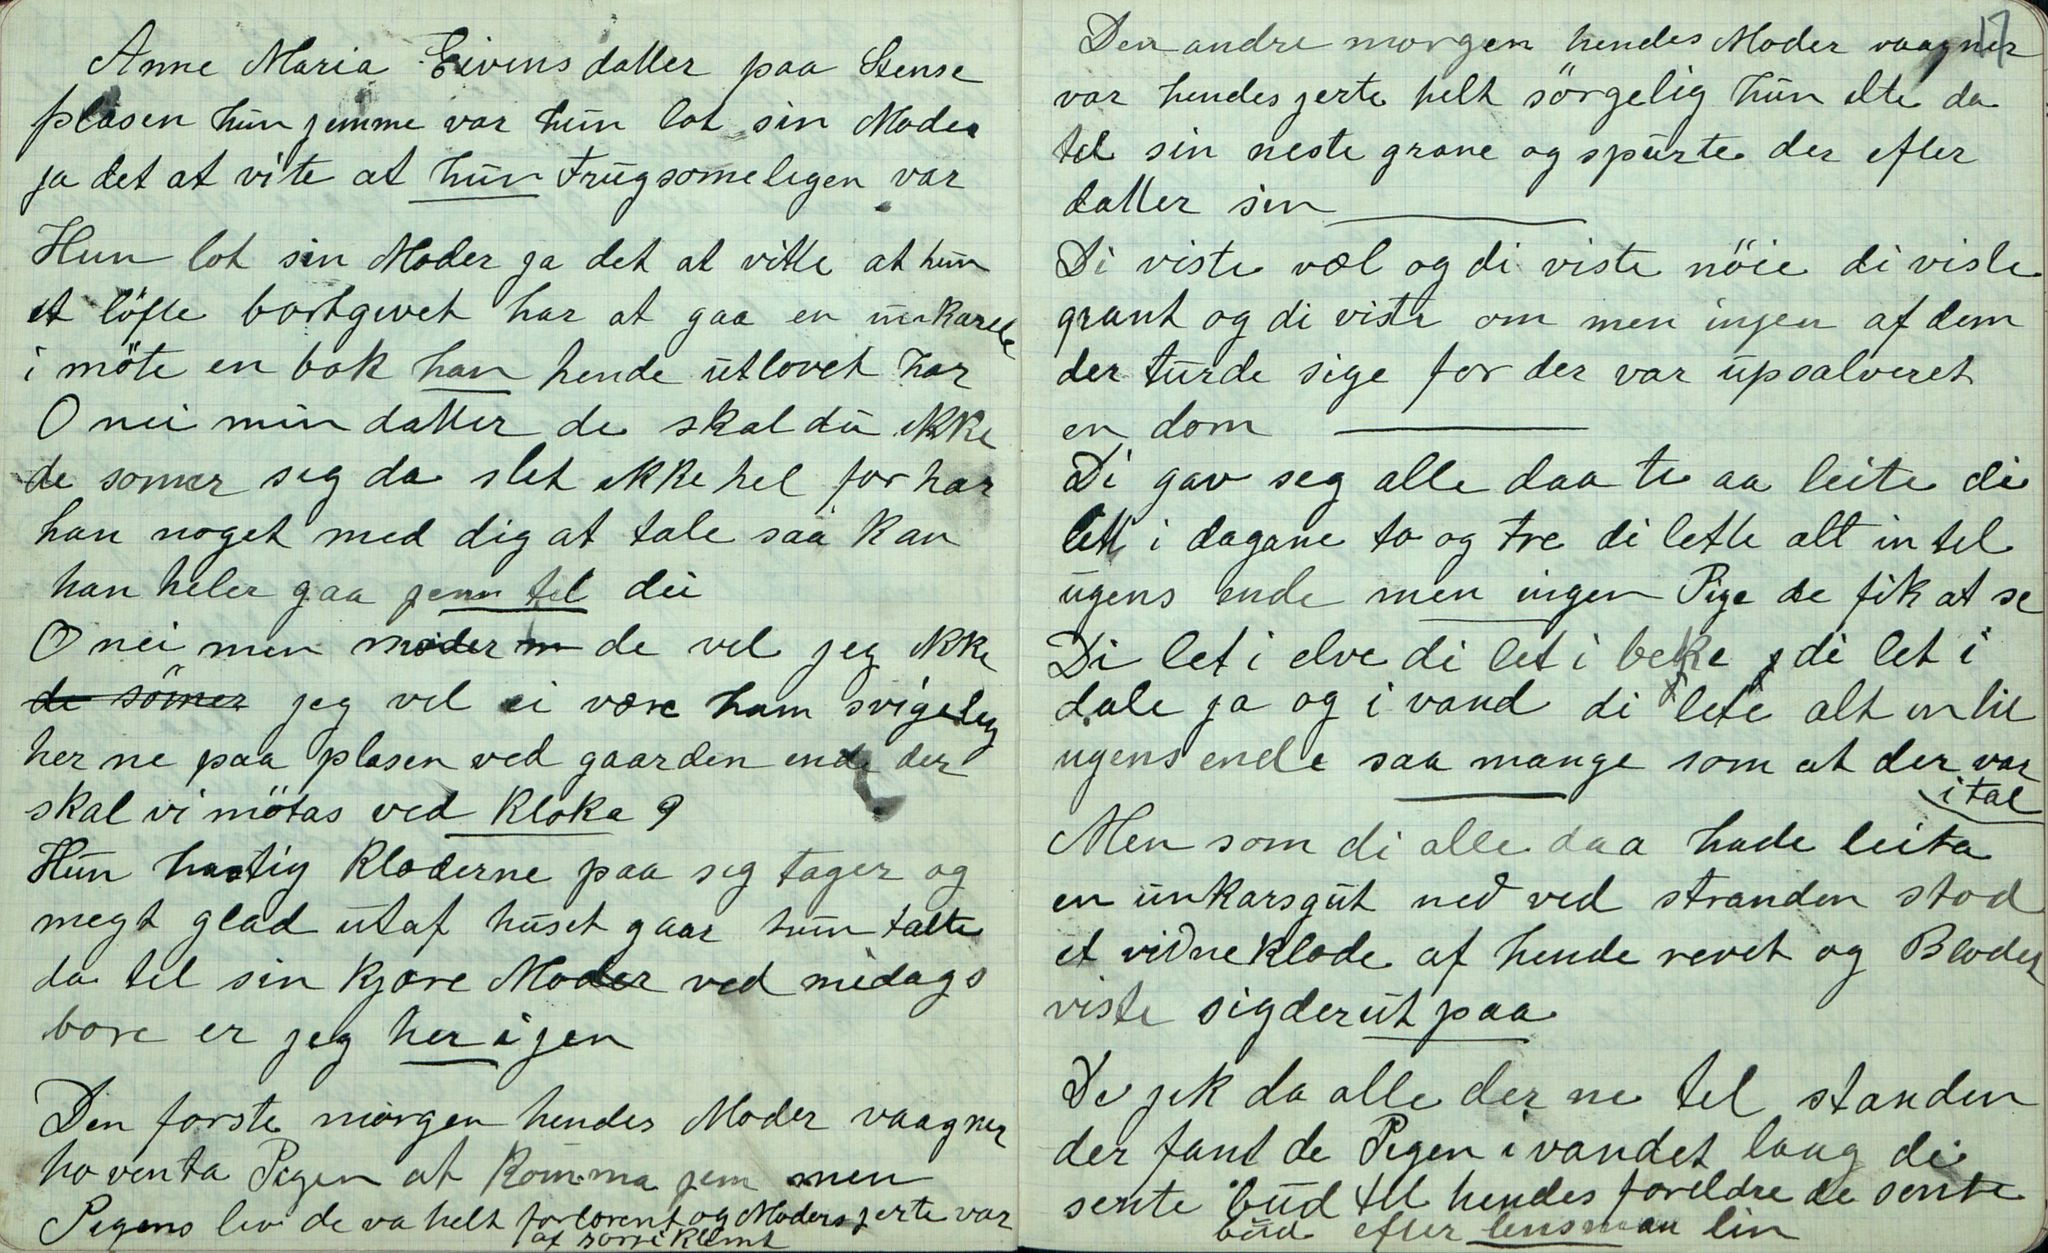 Anne Maria Eivensdatter paa Stense
plasen hun jemme var hun lot sin Moder
ja det at vite at hun frugsomeligen var
Hun lot sin Moder ja det at vitte at hun
et löfte bortgivet har at gaa en unkarell
i möte en bok han hende utlovet har
O nei min datter de skal du ikke
de somer seg da slet ikke hel for har
han noget med dig at tale saa kan
han heler gaa jem tel dei
O nei men moder m de vel jeg ikke
de sömer jeg vel ei være ham svigeleg
her ne paa plasen ved gaarden ende der
skal vi mötas ved Kloka 9
Hun hastig Klæderne paa seg tager og
megt glad ut af huset gaar hun talte
da tel sin Kjære Moder ved midags
bore er jeg her igen
Den forste morgen hendes Moder vaagner
ho venta Pigen at Komma jem men
Pigens liv de va helt forlorent og Moders jerte var
af sorri Klemt
17
Den andre morgen hendes Moder vaagner
var hendes jerte helt sörgelig hun elte da
tel sin neste grane og spurte der efter
datter sin
Di viste vel og di viste nöie di viste
grant og di viste om men ingen af dem
der turde sige for der var upsalveret
en dom
Di gav seg alle daa te aa leite di
lett i dagane to og tre di lette alt in tel
ugens ende men ingen Pige de fik at se
Di let i elve di let i bekke di let i
dale ja og i vand di lete alt in til
ugens ende saa mange som at der var
i tal
Men som di alle daa hade leita
en unkarsgut ned ved stranden stod
et vidne klæde af hende revet og Blodet
viste sig derut paa
De jek da alle der ne tel standen
der fant de Pigen i vandet laag di
sente bud til hendes foreldre de sente
bud efter lensman lin